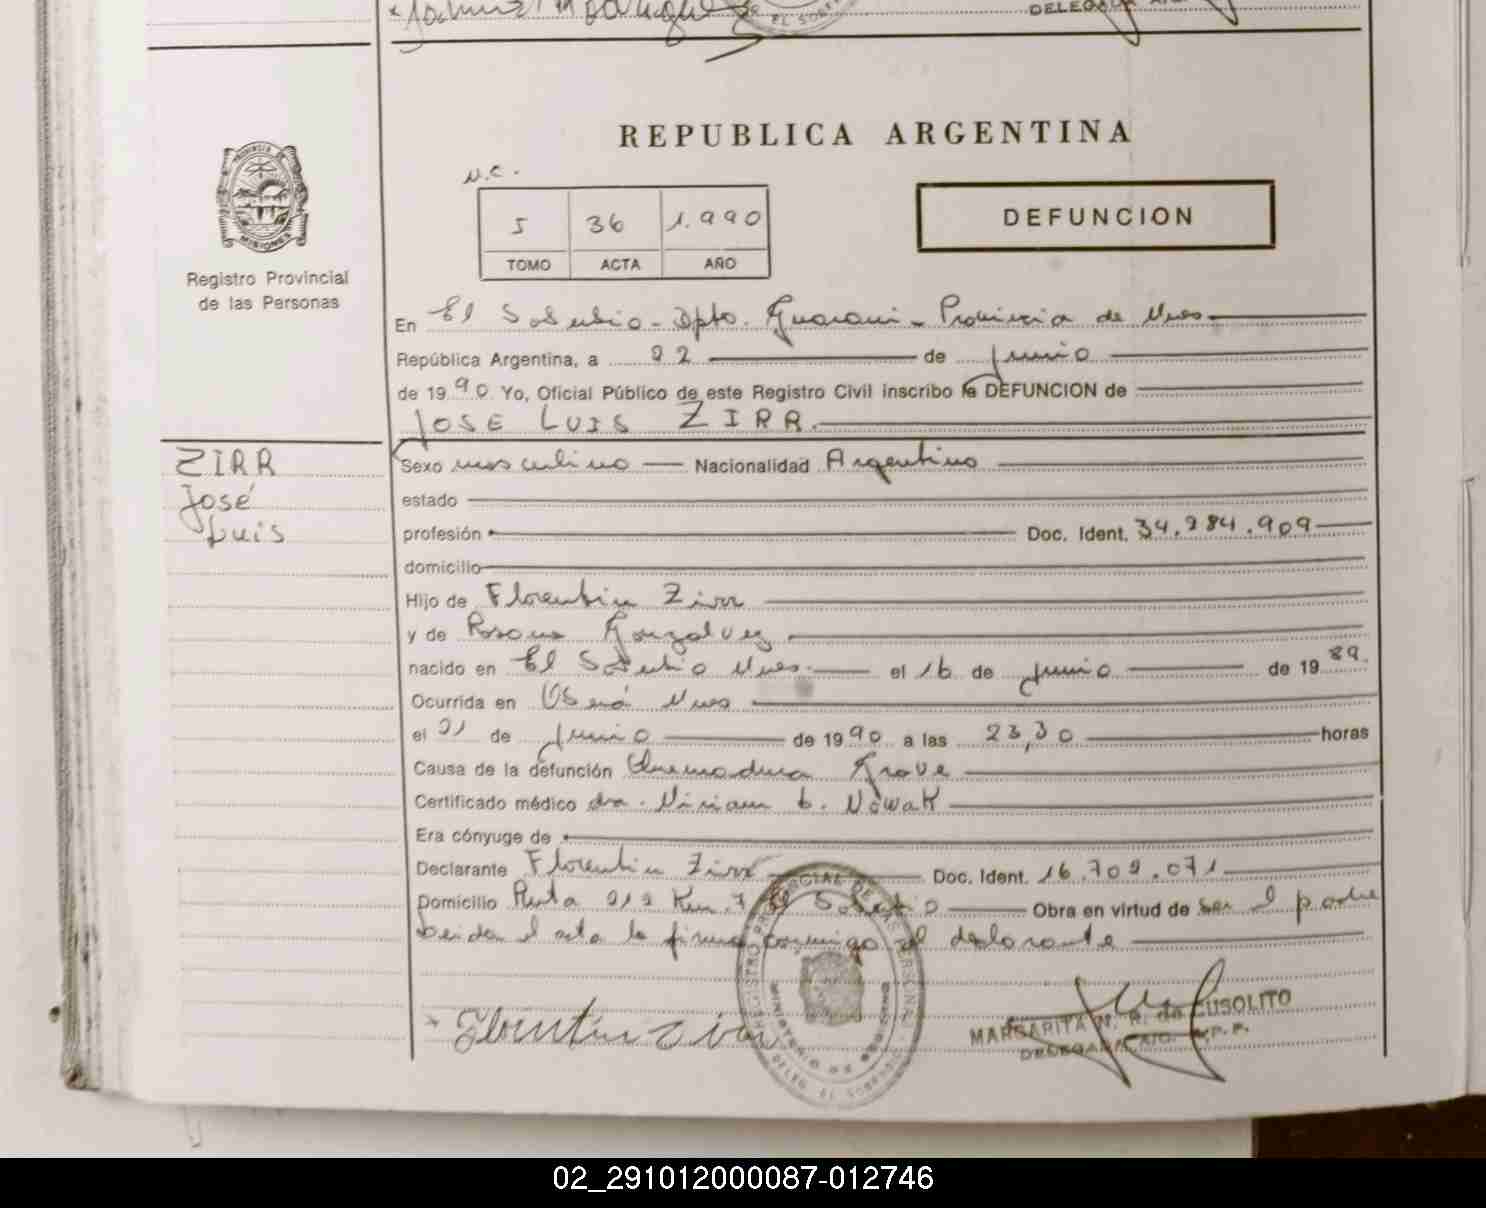 DELEGADA
REPUBLICA ARGENTINA
N.C.
5 36 1.990
TOMO ACTA AÑO
DEFUNCION
PROVINCIA DE
MISIONES
Registro Provincial
de las Personas
En El Soberbio - Dpto. Guarani - Provincia de Mnes
República Argentina, a 22 de Junio
de 1990 Yo, Oficial Público de este Registro Civil inscribo la DEFUNCION de
JOSE LUIS ZIRR.
ZIRR
José
Luis
Sexo masculino Nacionalidad Argentino
estado
profesión Doc. Ident. 34.284.909
domicilio
Hijo de Florentin Zirr
y de Rosana Gonzalvez
nacido en El Soberbio Mnes. el 16 de Junio de 1989.
Ocurrida en Oberá Mnes
el 21 de Junio de 1990 a las 23,30 horas
Causa de la defunción Quemadura Grave
Certificado médico dra. Miriam b. Nowak
Era cónyuge de
Declarante Florentin Zirr Doc. Ident. 16.709.071
Domicilio Ruta 212 Km. 7 El Soberbio Obra en virtud de ser el padre
Leida el acta la firma conmigo el declarante
Florentin Zirr
REGISTRO PROVINCIAL DE LAS PERSONAS
MINISTERIO DE GOBIERNO
DELEG. EL SOBERBIO
MARGARITA N. R. de CUSOLITO
DELEGADA
02_291012000087-012746